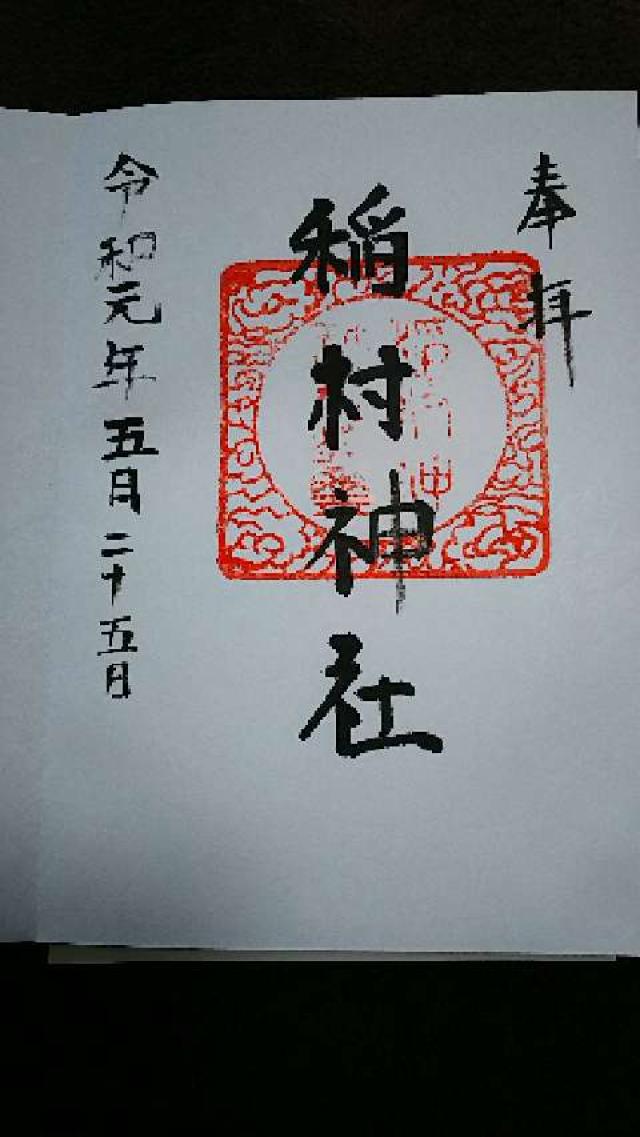 奉拝
稲村神社
令和元年五月二十五日